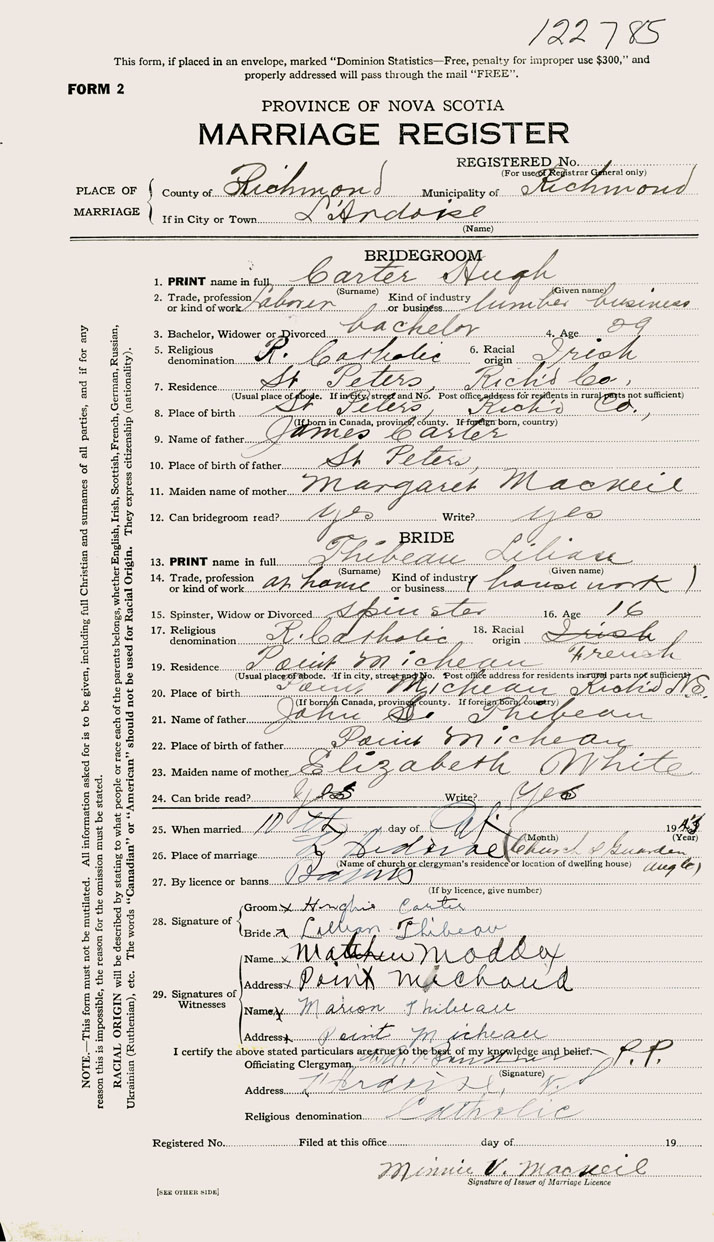 122785
This form, if placed in an envelope, marked "Dominion Statistics—Free, penalty for improper use $300," and
properly addressed will pass through the mail "FREE".
FORM 2
PROVINCE OF NOVA SCOTIA
MARRIAGE REGISTER
REGISTERED No.
(For use of Registrar General only)
PLACE OF MARRIAGE
County of Richmond Municipality of Richmond
If in City or Town L'Ardoise
(Name)
BRIDEGROOM
1. PRINT name in full Carter Hugh
(Surname) (Given name)
2. Trade, profession or kind of work laborer Kind of industry or business lumber business
3. Bachelor, Widower or Divorced bachelor 4. Age 29
5. Religious denomination R. Catholic 6. Racial origin Irish
7. Residence St Peters, Rich'd Co,
(Usual place of abode. If in city, street and No. Post office address for residents in rural parts not sufficient)
8. Place of birth St Peters, Rich'd Co.,
(If born in Canada, province, county. If foreign born, country)
9. Name of father James Carter
10. Place of birth of father St Peters,
11. Maiden name of mother Margaret MacNeil
12. Can bridegroom read? yes Write? yes
BRIDE
13. PRINT name in full Thibeau Lilian
(Surname) (Given name)
14. Trade, profession or kind of work at home Kind of industry or business (housework)
15. Spinster, Widow or Divorced spinster 16. Age 16
17. Religious denomination R. Catholic 18. Racial origin Irish French
19. Residence Point Micheau
(Usual place of abode. If in city, street and No. Post office address for residents in rural parts not sufficient)
20. Place of birth Point Micheau Rich'd N.S.
(If born in Canada, province, county. If foreign born, country)
21. Name of father John S. Thibeau
22. Place of birth of father Point Micheau
23. Maiden name of mother Elizabeth White
24. Can bride read? Yes Write? Yes
25. When married 10th day of 1943
(Month) (Year)
26. Place of marriage L'Ardoise (Church of Guardian Angle)
(Name of church or clergyman's residence or location of dwelling house)
27. By licence or banns Banns
(If by licence, give number)
28. Signature of
Groom x Hughie Carter
Bride x Lillian Thibeau
29. Signatures of Witnesses
Name x Matthew Maddox
Address x Point Michaud
Name x Marion Thibeau
Address x Point Micheau
I certify the above stated particulars are true to the best of my knowledge and belief.
Officiating Clergyman P.P.
(Signature)
Address L'Ardoise, N.S
Religious denomination Catholic
Registered No. Filed at this office day of 19
Minnie V. MacNeil
Signature of Issuer of Marriage Licence
[SEE OTHER SIDE]
NOTE.—This form must not be mutilated. All information asked for is to be given, including full Christian and surnames of all parties, and if for any
reason this is impossible, the reason for the omission must be stated.
RACIAL ORIGIN will be described by stating to what people or race each of the parents belongs, whether English, Irish, Scottish, French, German, Russian,
Ukrainian (Ruthenian), etc. The words "Canadian" or "American" should not be used for Racial Origin. They express citizenship (nationality).